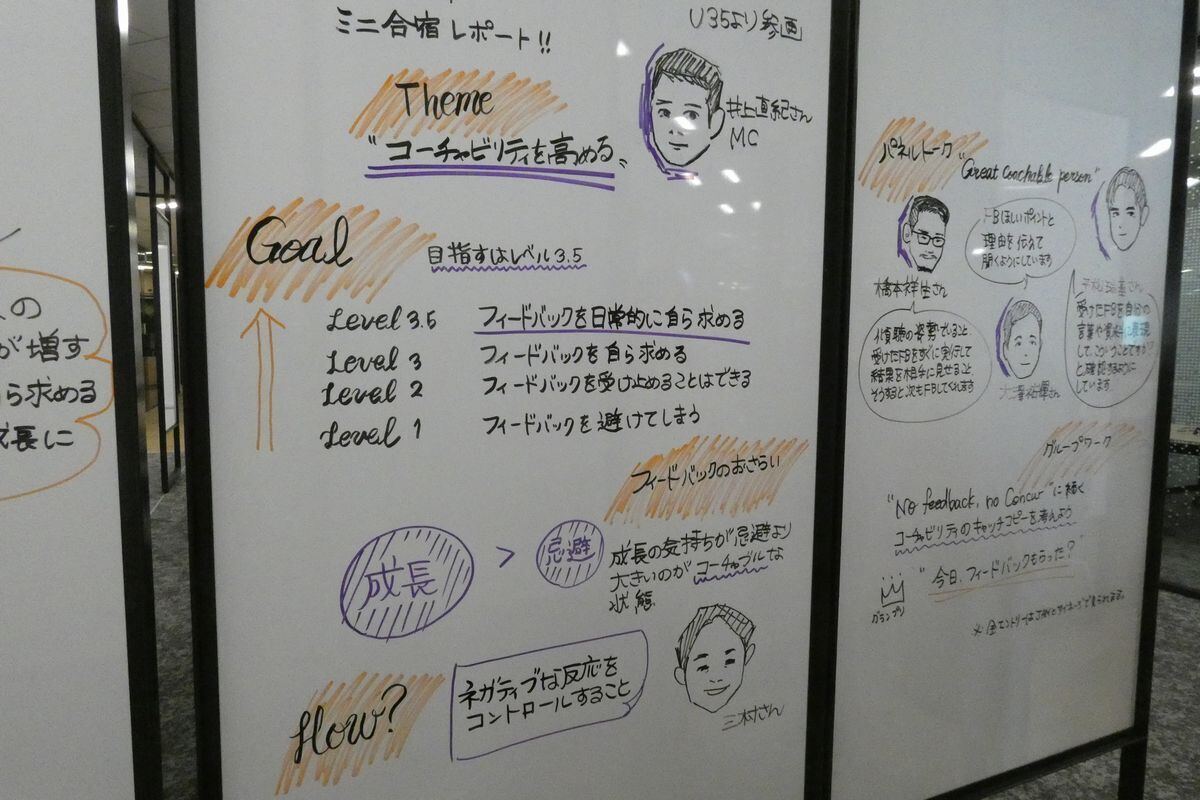 の
が増す
ら求める
成長に
ミニ合宿レポート!!
U35より参画
Theme
"コーチャビリティを高める"
井上直紀さん
MC
Goal
目指すはレベル3.5
Level 3.5 フィードバックを日常的に自ら求める
Level 3 フィードバックを自ら求める
Level 2 フィードバックを受け止めることはできる
Level 1 フィードバックを避けてしまう
フィードバックのおさらい
成長 > 忌避
成長の気持ちが忌避より
大きいのがコーチャブルな
状態
How?
ネガティブな反応を
コントロールすること
三村さん
パネルトーク
"Great coachable person"
FBほしいポイントと
理由を伝えて
聞くようにしています
橋本祥生さん
傾聴の姿勢でいること
受けたFBをすぐに実行して
結果を相手に見せること
そうすると次もFBしてくれます
さん
受けたFBを自分の
言葉や
して、こういうことですか?
と確認するように
しています
さん
グループワーク
"No feedback, no Concur"に続く
コーチャビリティのキャッチコピーを考えよう
グランプリ
"今日、フィードバックもらった?"
※全エントリーは